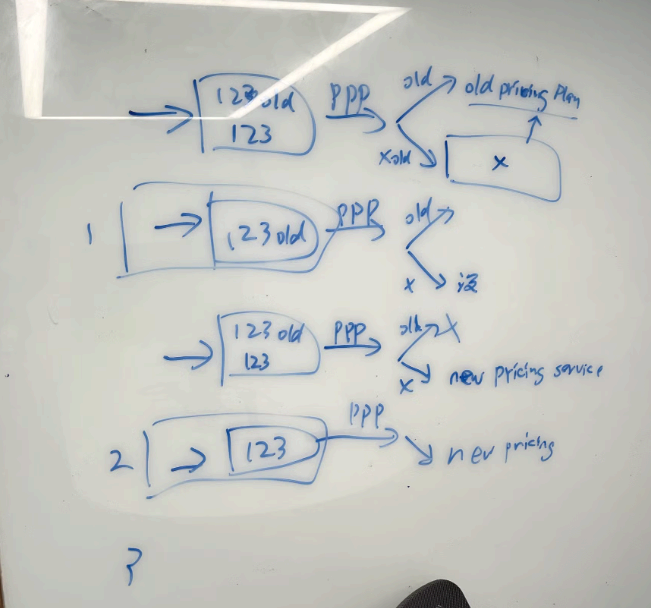 123 old PPP old old pricing plan
123
x old x
1 123 old PPP old
x 没
123 old PPP old x
123 x new pricing service
PPP
2 123 new pricing
3